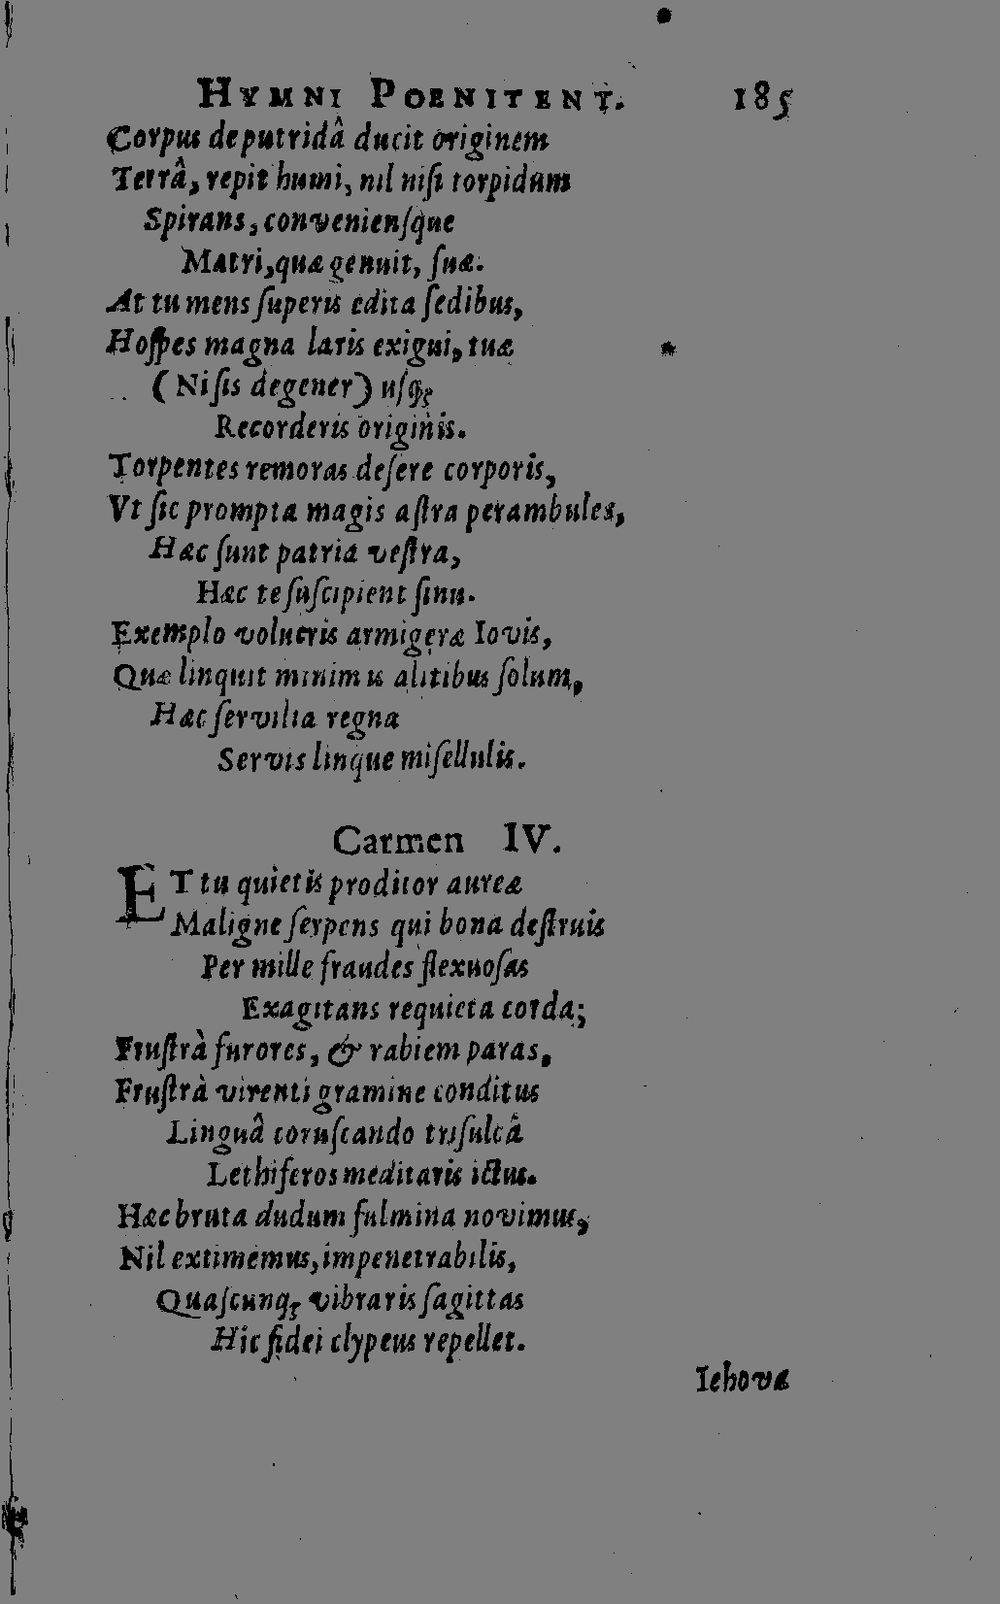 HYMNI POENITENT. 185
Corpus de putridâ ducit originem
Terrâ, repit humi, nil niſi torpidum
Spirans, convenienſque
Matri, quæ genuit, ſuæ.
At tu mens ſuperis edita ſedibus,
Hoſpes magna laris exigui, tuæ
(Ni ſis degener) uſq;
Recorderis originis.
Torpentes remoras deſere corporis,
Vt ſic prompta magis aſtra perambules,
Hæc ſunt patria veſtra,
Hæc te ſuſcipient ſinu.
Exemplo volucris armigeræ Iovis,
Quæ linquit minimis alitibus ſolum,
Hæc ſervilia regna
Servis linque miſellulis.
Carmen IV.
ET tu quietis proditor aureæ
Maligne ſerpens qui bona deſtruis
Per mille fraudes flexuoſas
Exagitans requieta corda;
Fruſtrà furores, & rabiem paras,
Fruſtrà virenti gramine conditus
Linguâ coruſcando triſulcâ
Lethiferos meditaris ictus.
Hæc bruta dudum fulmina novimus,
Nil extimemus, impenetrabilis,
Quaſcunq; vibraris ſagittas
Hic fidei clypeus repellet.
Iehovæ